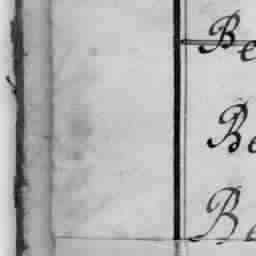 Be
Be
Be